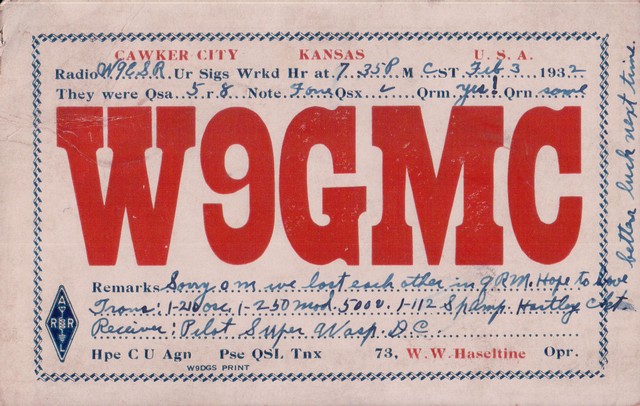 CAWKER CITY KANSAS U. S. A.
Radio W9GSR Ur Sigs Wrkd Hr at 7.35 P. M C ST Feb 3 1932
They were Qsa 5 r 8 Note Fone Qsx ✓ Qrm yes! Qrn some
W9GMC
Remarks Sorry o m we lost each other in QRM. Hope to have
better luck next time.
Trans: 1-210 osc, 1-250 mod. 500 v. 1-112 Sp Amp. Hartley Ckt.
Receiver: Pilot Super Wasp. D.C.
A R R L
Hpe C U Agn Pse QSL Tnx 73, W. W. Haseltine Opr.
W9DGS PRINT